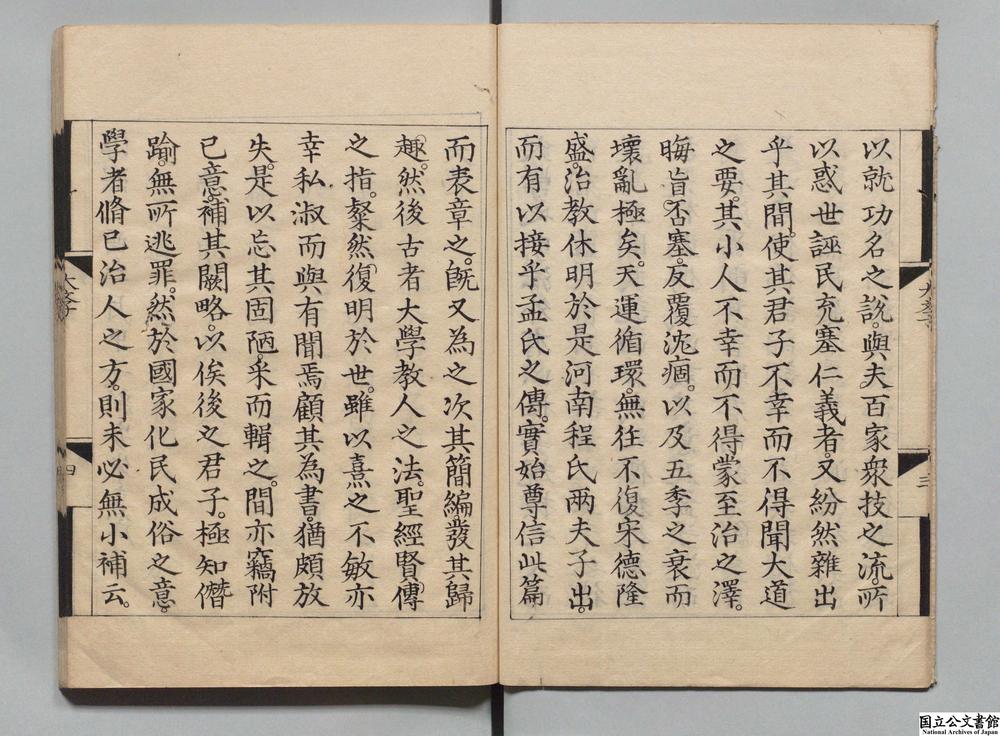 以就功名之說。與夫百家衆技之流。所
以惑世誣民充塞仁義者。又紛然雜出
乎其間。使其君子不幸而不得聞大道
之要。其小人不幸而不得蒙至治之澤。
晦盲。否塞。反覆沈痼。以及五季之衰而
壞亂極矣。天運循環。無徃不復宋德隆
盛。治教休明於是河南程氏兩夫子出。
而有以接乎孟氏之傳。實始尊信此篇
而表章之。旣又為之次其簡編。發其歸
趣。然後古者大學教人之法。聖經賢傳
之指。粲然復明於世。雖以熹之不敏亦
幸私淑而與有聞焉顧其為書。猶頗放
失。是以忘其固陋。采而輯之。間亦竊附
己意。補其闕略。以俟後之君子。極知僭
踰。無所逃罪。然於國家化民成俗之意。
學者脩己治人之方。則未必無小補云。
三
四
国立公文書館
National Archives of Japan